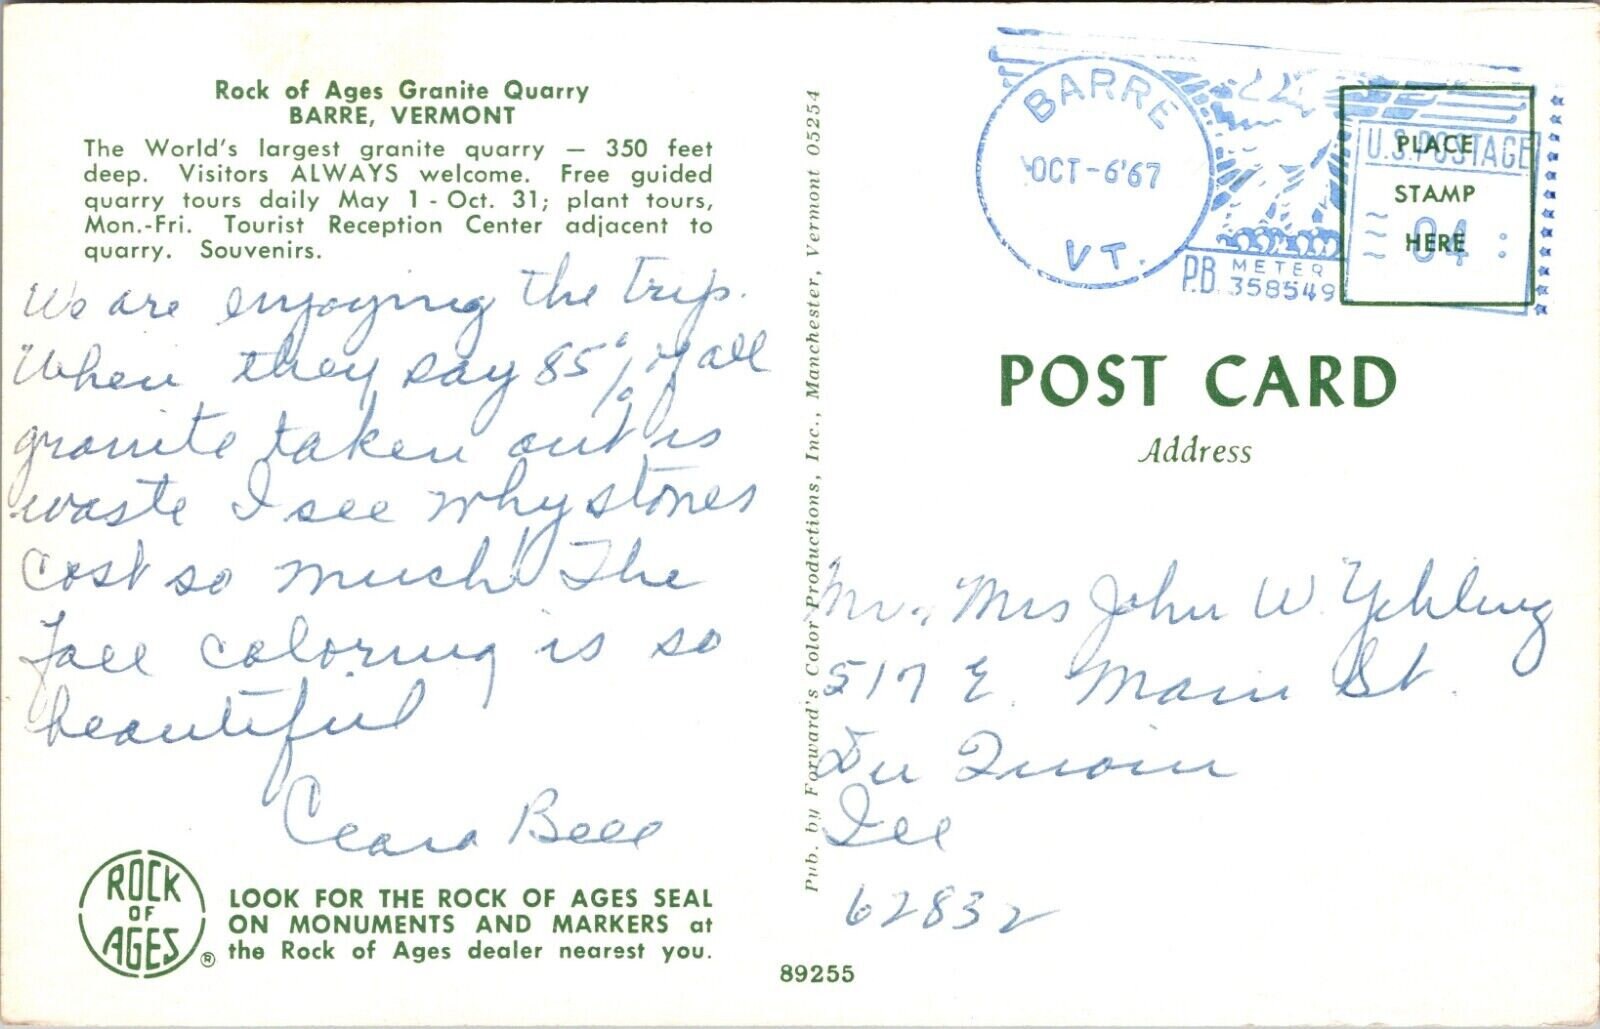 Rock of Ages Granite Quarry
BARRE, VERMONT
The World's largest granite quarry — 350 feet
deep. Visitors ALWAYS welcome. Free guided
quarry tours daily May 1 - Oct. 31; plant tours,
Mon.-Fri. Tourist Reception Center adjacent to
quarry. Souvenirs.
We are enjoying the trip.
When they say 85% of all
granite taken out is
waste I see why stones
cost so much! The
fall coloring is so
beautiful
Clara Bell
ROCK
OF
AGES
®
LOOK FOR THE ROCK OF AGES SEAL
ON MONUMENTS AND MARKERS at
the Rock of Ages dealer nearest you.
Pub. by Forward's Color Productions, Inc., Manchester, Vermont 05254
89255
BARRE
OCT-6'67
VT.
P.B. METER
358549
U.S. POSTAGE
04
PLACE
STAMP
HERE
POST CARD
Address
Mr. Mrs John W. Yehling
517 E. Main St.
Du Quoin
Ill
62832